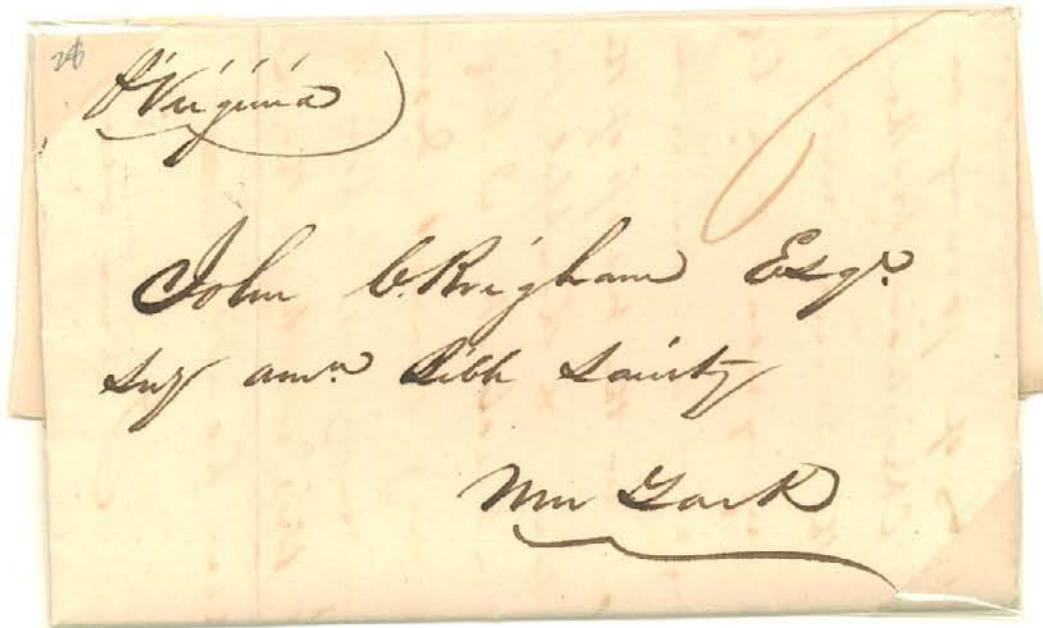 p Virginia
John C. Brigham Esqr.
Secy amn. Bible Society
New York